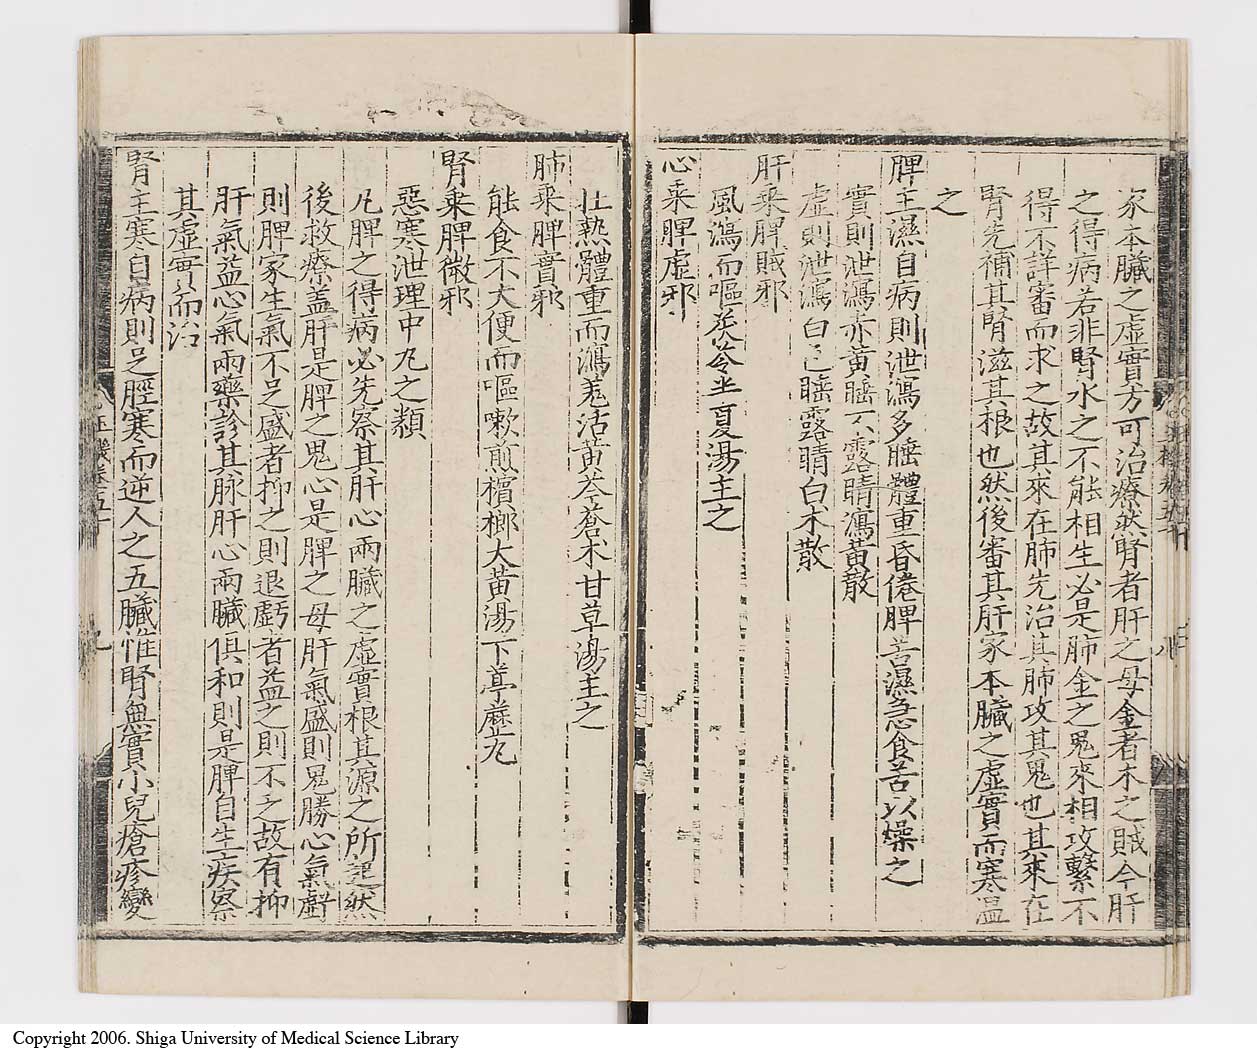 家本臟之虛實方可治療然腎者肝之母金者木之賊今肝
之得病若非腎水之不能相生必是肺金之鬼來相攻繫不
得不詳審而求之故其來在肺先治其肺攻其鬼也其來在
腎先補其腎滋其根也然後審其肝家本臟之虛實而寒溫
之
脾主濕自病則泄瀉多睡體重昏倦脾苦濕急食苦以燥之
實則泄瀉赤黃睡不露睛瀉黃散
虛則泄瀉白色睡露睛白木散
肝乘脾賊邪
風瀉而嘔茯苓半夏湯主之
心乘脾虛邪
壯熱體重而瀉羗活黃芩蒼朮甘草湯主之
肺乘脾實邪
能食不大便而嘔嗽煎檳榔大黃湯下葶藶丸
腎乘脾微邪
惡寒泄理中丸之類
凡脾之得病必先察其肝心兩臟之虛實根其源之所起然
後救療盖肝是脾之鬼心是脾之母肝氣盛則鬼勝心氣虧
則脾家生氣不足盛者抑之則退虧者益之則不乏故有抑
肝氣益心氣兩藥診其脉肝心兩臟俱和則是脾自生疾察
其虛實而治
腎主寒自病則足脛寒而逆人之五臟惟腎無實小兒瘡疹變
卷五十
九
八
Copyright 2006. Shiga University of Medical Science Library